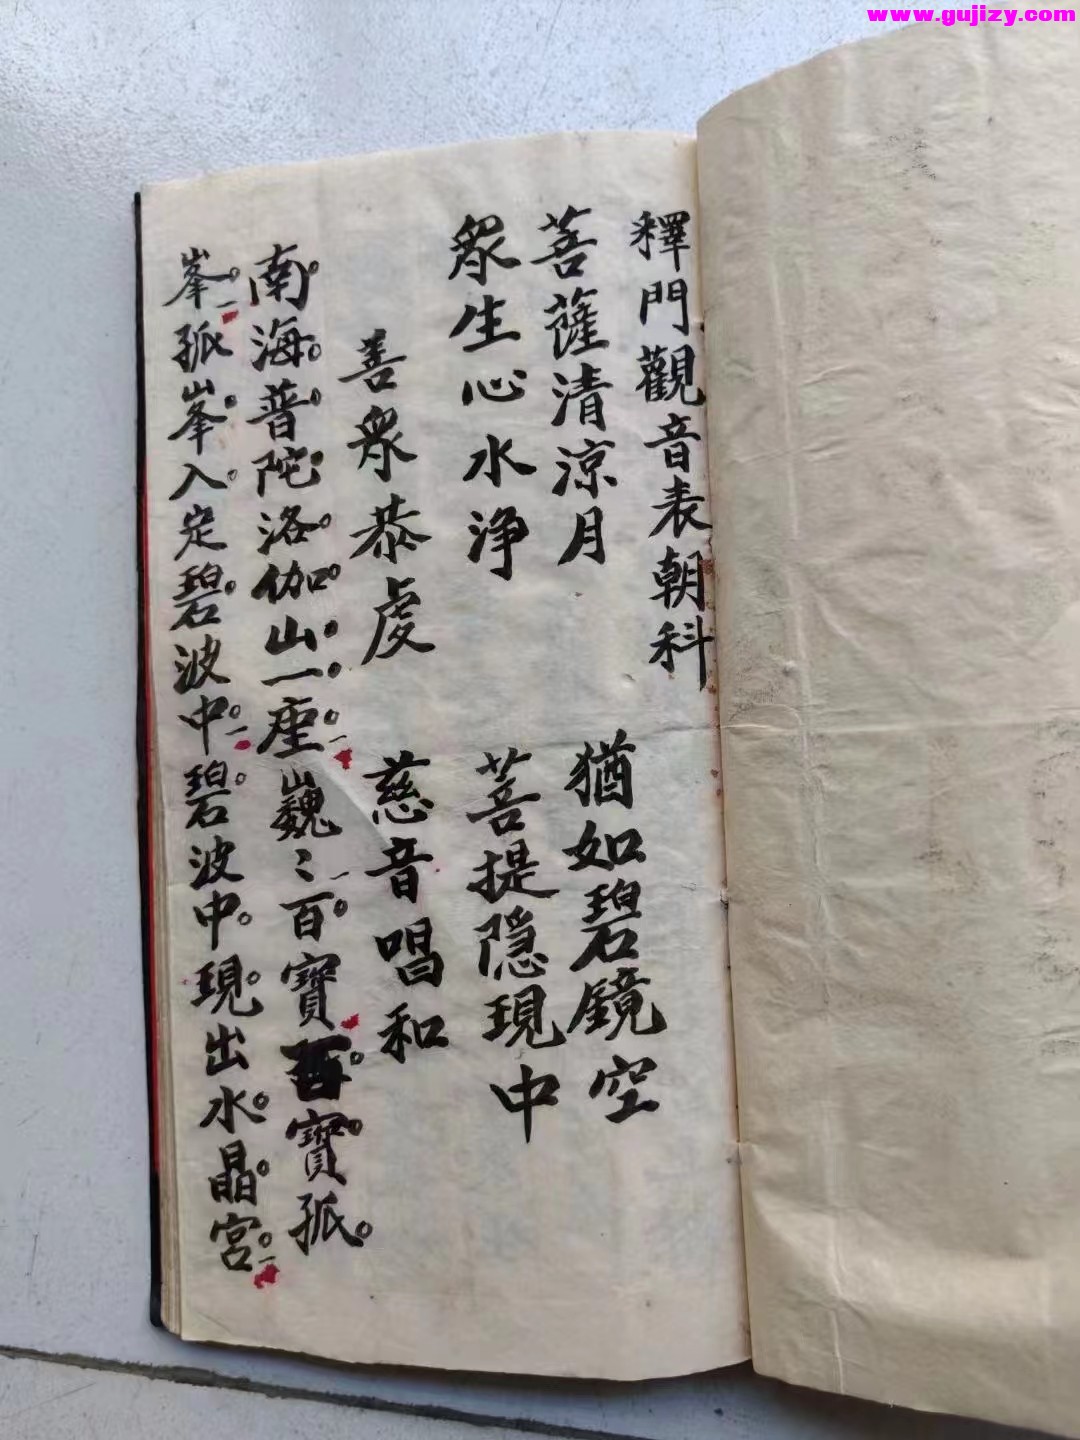 www.gujizy.com
釋門觀音表朝科
菩薩清凉月 猶如碧鏡空
衆生心水浄 菩提隐現中
善衆恭虔 慈音唱和
南海普陀洛伽山一座巍〻百寶百寶孤
峯孤峯入定碧波中碧波中現出水晶宮